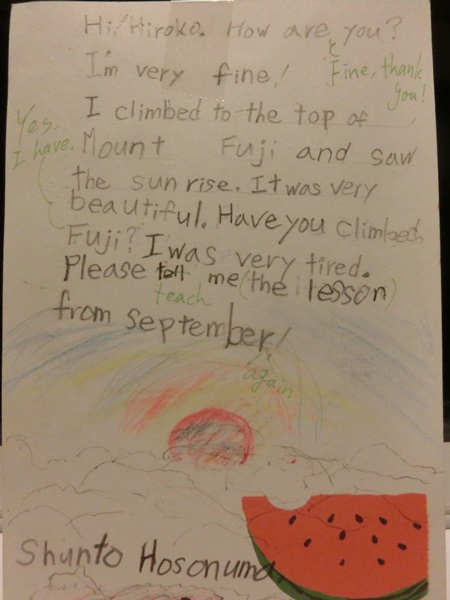 Hi, Hiroko. How are you?
Fine, thank you!
I'm very fine!
I climbed to the top of
Yes, I have.
Mount Fuji and saw
the sunrise. It was very
beautiful. Have you climbed
Fuji? I was very tired.
Please tell me (the lesson)
teach
from september!
again
Shunto Hosonuma.